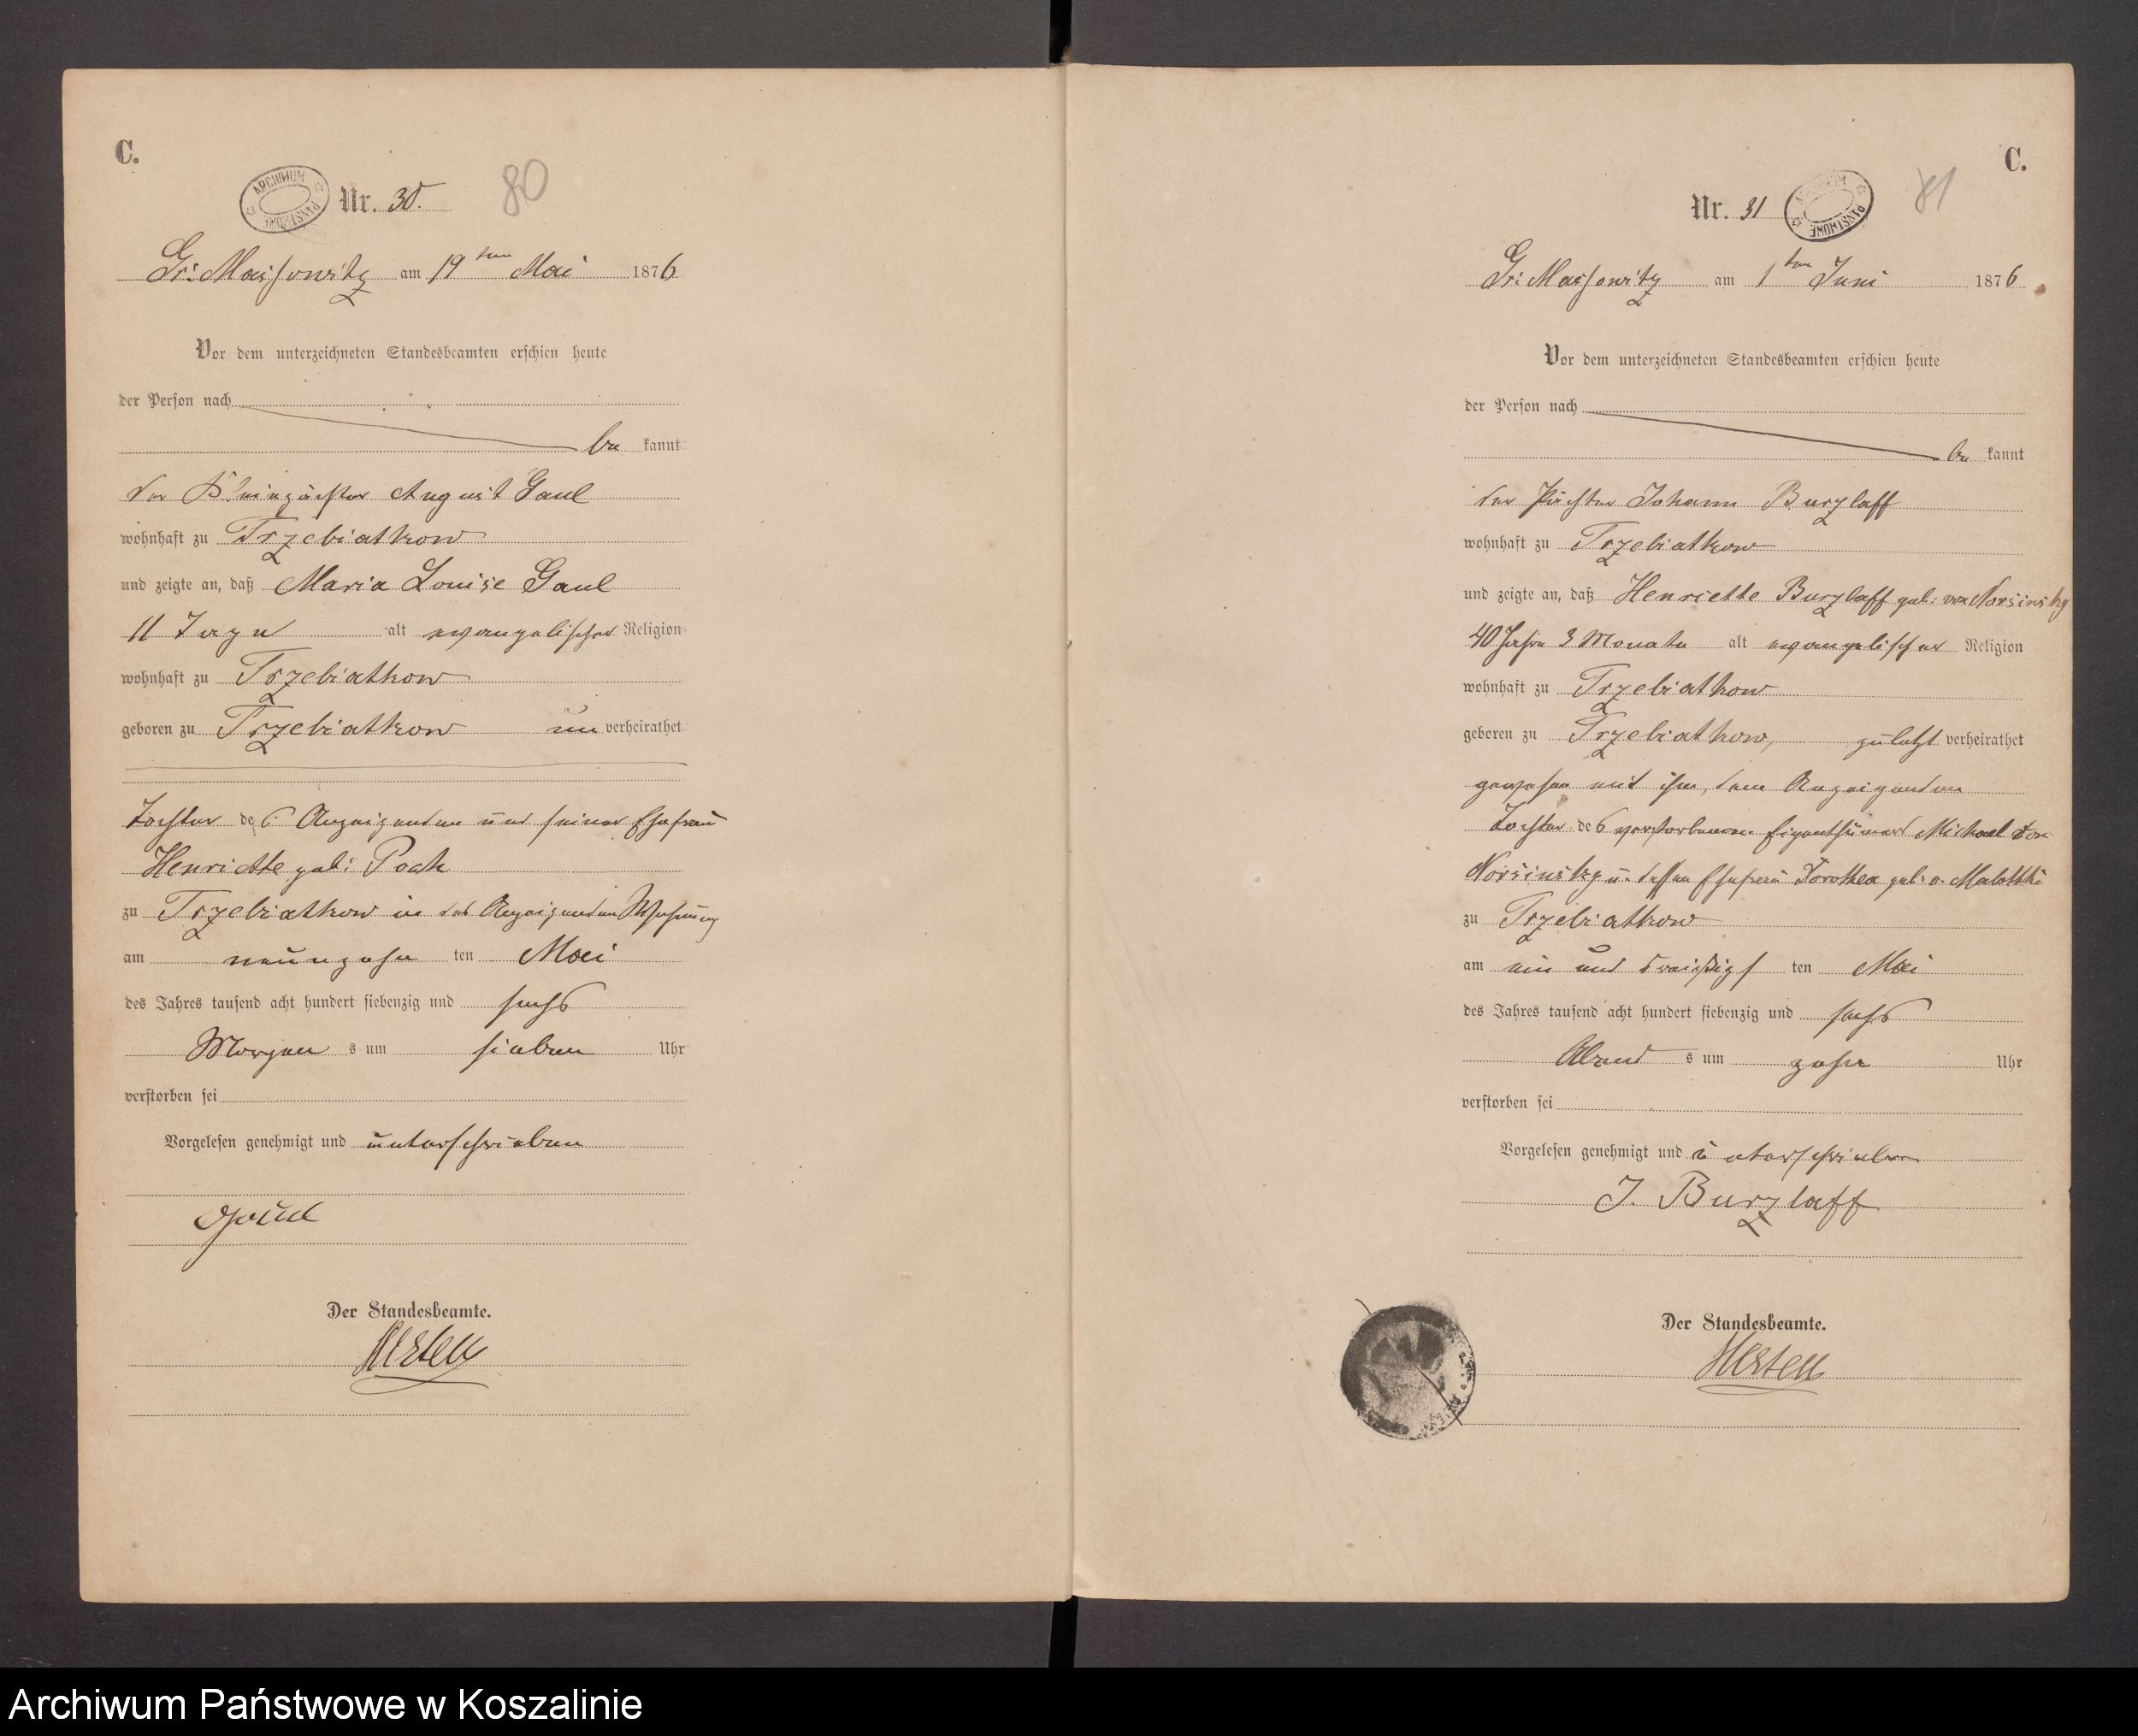 C.
ARCHIWUM PAŃSTWOWE
Nr. 30.
80
Gr: Massowitz am 19ten Mai 1876
Vor dem unterzeichneten Standesbeamten erschien heute
der Person nach
be kannt
der Kleinpächter August Gaul
wohnhaft zu Trzebiatkow
und zeigte an, daß Maria Louise Gaul
11 Tage alt evangelischer Religion
wohnhaft zu Trzebiatkow
geboren zu Trzebiatkow un verheirathet
Tochter des Anzeigenden und seiner Ehefrau
Henriette geb: Poch
zu Trzebiatkow in des Anzeigenden Wohnung
am neunzehn ten Mai
des Jahres tausend acht hundert siebenzig und sechs
Morgen s um sieben Uhr
verstorben sei
Vorgelesen genehmigt und unterschrieben
Gaul
Der Standesbeamte.
C.
Nr. 31
ARCHIWUM PAŃSTWOWE
81
Gr: Massowitz am 1ten Juni 1876
Vor dem unterzeichneten Standesbeamten erschien heute
der Person nach
be kannt
der Pächter Johann Burzlaff
wohnhaft zu Trzebiatkow
und zeigte an, daß Henriette Burzlaff geb: von Norsinsky
40 Jahre 3 Monate alt evangelischer Religion
wohnhaft zu Trzebiatkow
geboren zu Trzebiatkow, zuletzt verheirathet
gewesen mit ihm, dem Anzeigenden
Tochter des verstorbenen Eigenthümers Michael von
Norsinsky u. dessen Ehefrau Dorothea geb: v. Malottki
zu Trzebiatkow
am ein und dreißigs ten Mai
des Jahres tausend acht hundert siebenzig und sechs
Abend s um zehn Uhr
verstorben sei
Vorgelesen genehmigt und unterschrieben
J. Burzlaff
Der Standesbeamte.
Archiwum Państwowe w Koszalinie